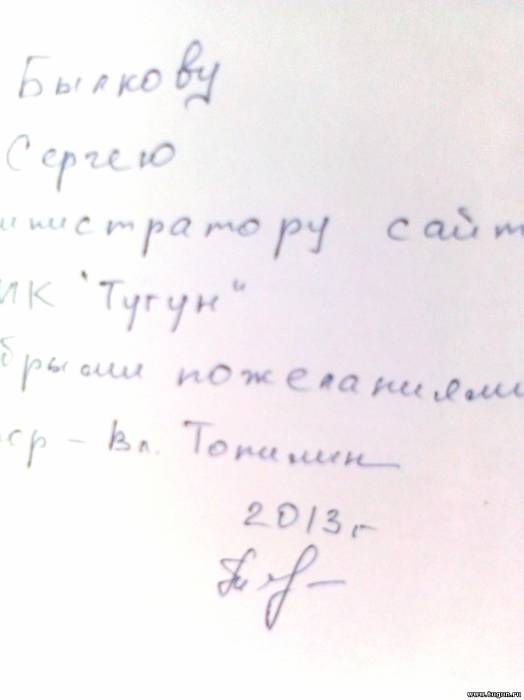 Былкову
Сергею
министратору сайт
ИК "Тугун"
брыми пожеланиями
ср - Вл. Топилин
2013 г
www.tugun.ru